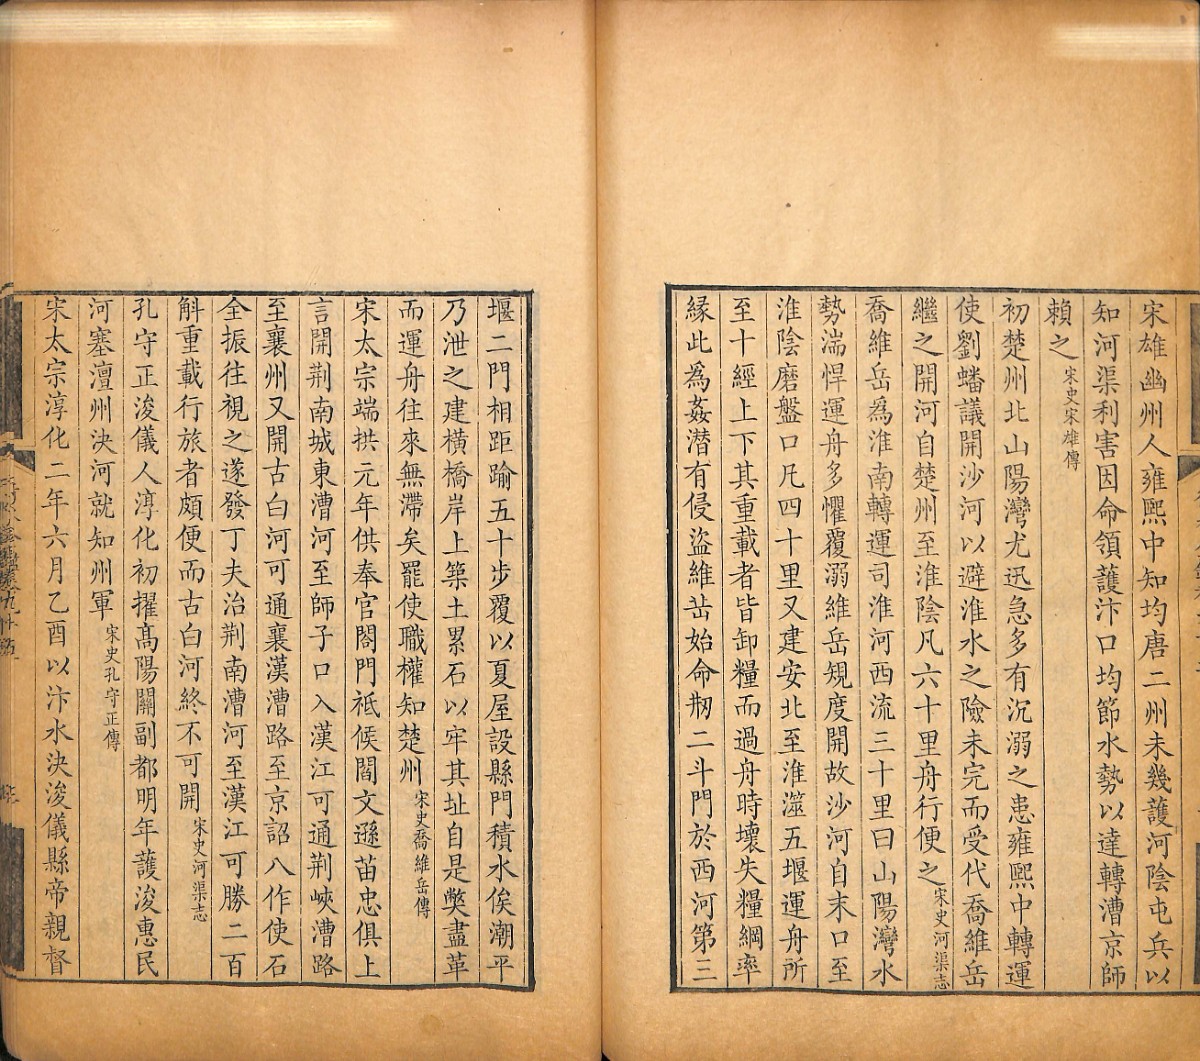 宋雄幽州人雍熙中知均唐二州未幾護河陰屯兵以
知河渠利害因命領護汴口均節水勢以達轉漕京師
賴之宋史宋雄傳
初楚州北山陽灣尤迅急多有沉溺之患雍熙中轉運
使劉蟠議開沙河以避淮水之險未完而受代喬維岳
繼之開河自楚州至淮陰凡六十里舟行便之宋史河渠志
喬維岳為淮南轉運司淮河西流三十里曰山陽灣水
勢湍悍運舟多懼覆溺維岳規度開故沙河自末口至
淮陰磨盤口凡四十里又建安北至淮澨五堰運舟所
至十經上下其重載者皆卸糧而過舟時壞失糧綱率
緣此為姦潛有侵盜維岳始命剏二斗門於西河第三
堰二門相距踰五十步覆以夏屋設縣門積水俟潮平
乃泄之建橫橋岸上築土累石以牢其址自是獘盡革
而運舟往來無滯矣罷使職權知楚州宋史喬維岳傳
宋太宗端拱元年供奉官閤門祗候閻文遜苗忠俱上
言開荆南城東漕河至師子口入漢江可通荆峽漕路
至襄州又開古白河可通襄漢漕路至京詔八作使石
全振往視之遂發丁夫治荆南漕河至漢江可勝二百
斛重載行旅者頗便而古白河終不可開宋史河渠志
孔守正浚儀人淳化初擢髙陽關副都明年護浚惠民
河塞澶州決河就知州軍宋史孔守正傳
宋太宗淳化二年六月乙酉以汴水決浚儀縣帝親督